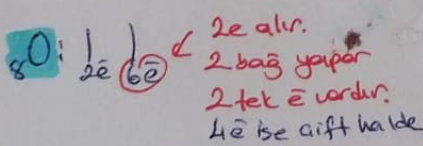 ₈O: 2ē 6ē 2e alır.
2 bağ yapar
2 tek ē vardır.
4ē ise çift halde